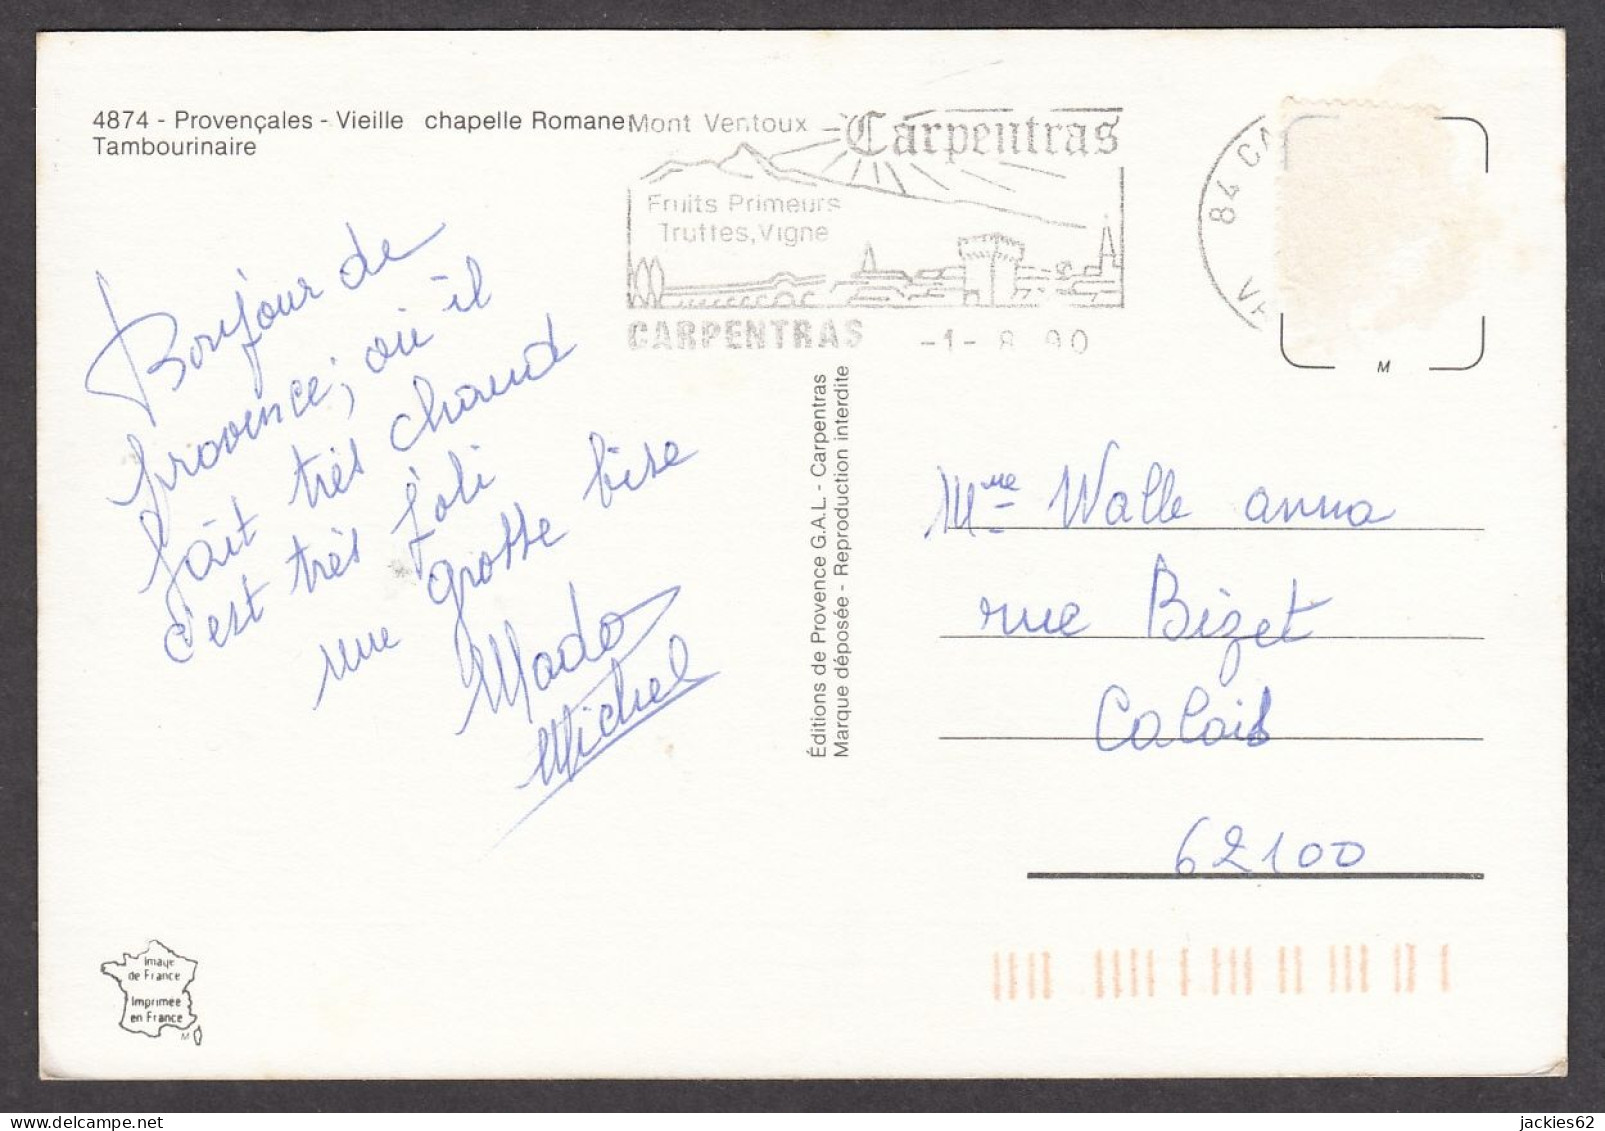 4874 - Provençales - Vieille chapelle Romane
Tambourinaire
Mont Ventoux
Carpentras
Fruits Primeurs
Truffes, Vigne
CARPENTRAS
-1- 8 90
84 CA
VA
M
Bonjour de
provence, où il
fait très chaud
c'est très joli
une grosse bise
Mado
Michel
Éditions de Provence G.A.L. - Carpentras
Marque déposée - Reproduction interdite
Mme Walle anna
rue Bizet
Calais
62100
Image
de France
Imprimée
en France
M
jackies62